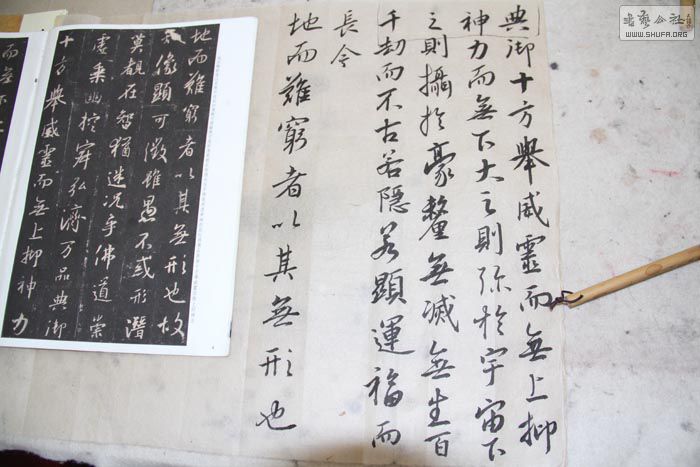 書藝公社
WWW.SHUFA.ORG
典御十方舉威靈而無上抑
神力而無下大之則弥於宇宙下
之則攝於豪釐無滅無生百
千劫而不古若隱若顯運福而
長今
地而難窮者以其無形也
地而難窮者以其無形也故
像顯可徵雖愚不惑形潛
莫覩在智猶迷況乎佛道崇
虛乘幽控寂弘濟万品典御
十方舉威靈而無上抑神力